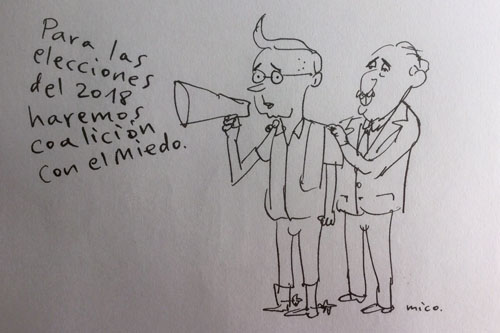 Para las
elecciones
del 2018
haremos
coalición
con el miedo.
mico.